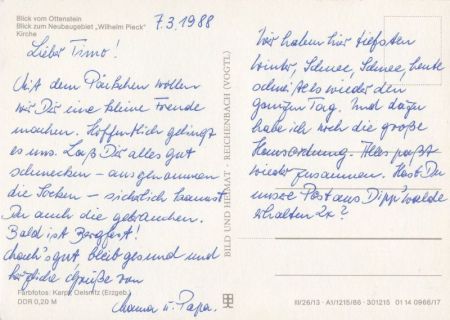 Blick vom Ottenstein
Blick zum Neubaugebiet „Wilhelm Pieck"
Kirche
7.3.1988
Lieber Timo!
Mit dem Päckchen wollen
wir Dir eine kleine Freude
machen. Hoffentlich gelingt
es uns. Laß Dir alles gut
schmecken - ausgenommen
die Socken - sicherlich kannst
Du auch die gebrauchen.
Bald ist Bergfest!
Mach's gut bleib gesund und
herzliche Grüße von
Mama u. Papa.
Farbfotos: Karpf, Oelsnitz (Erzgeb.)
DDR 0,20 M
BILD UND HEIMAT · REICHENBACH (VOGTL)
Wir haben hier tiefsten
Winter, Schnee, Schnee, heute
schneit es wieder den
ganzen Tag. Und dazu
habe ich noch die große
Hausordnung. Alles paßt
wieder zusammen. Hast Du
unsere Post aus Dipp'walde
erhalten 2x?
III/26/13 · A1/1215/86 · 301215 01 14 0966/17